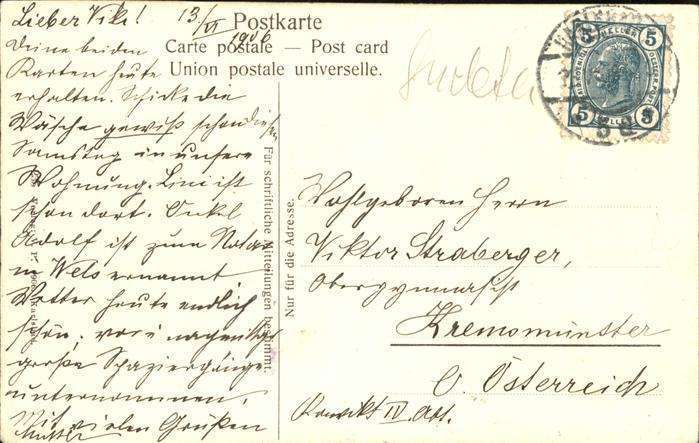 Lieber Viki! 13/VI 1906
Postkarte
Carte postale — Post card
Union postale universelle.
Deine beiden
Karten heute
erhalten. Schicke die
Wäsche gewiß schon diesen
Samstag in unsere
Wohnung. Lini ist
schon dort. Onkel
Adolf ist zum Notar
in Wels ernannt
Wetter heute endlich
schön, vor u nachmittg
große Spaziergänge
unternommen,
Mit vielen Grüßen
Mutter
Für schriftliche Mitteilungen bestimmt.
Nur für die Adresse.
5 HELLER 5
5 HELLER 5
Wohlgeboren Herrn
Viktor Straberger,
Obergymnasist
Kremsmünster
O. Österreich
Konvikt IV. Abt.